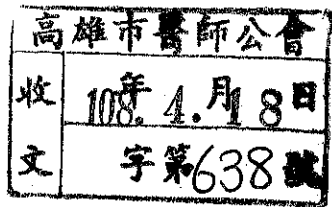 高雄市醫師公會
收文
108年4.月18日
字第638號